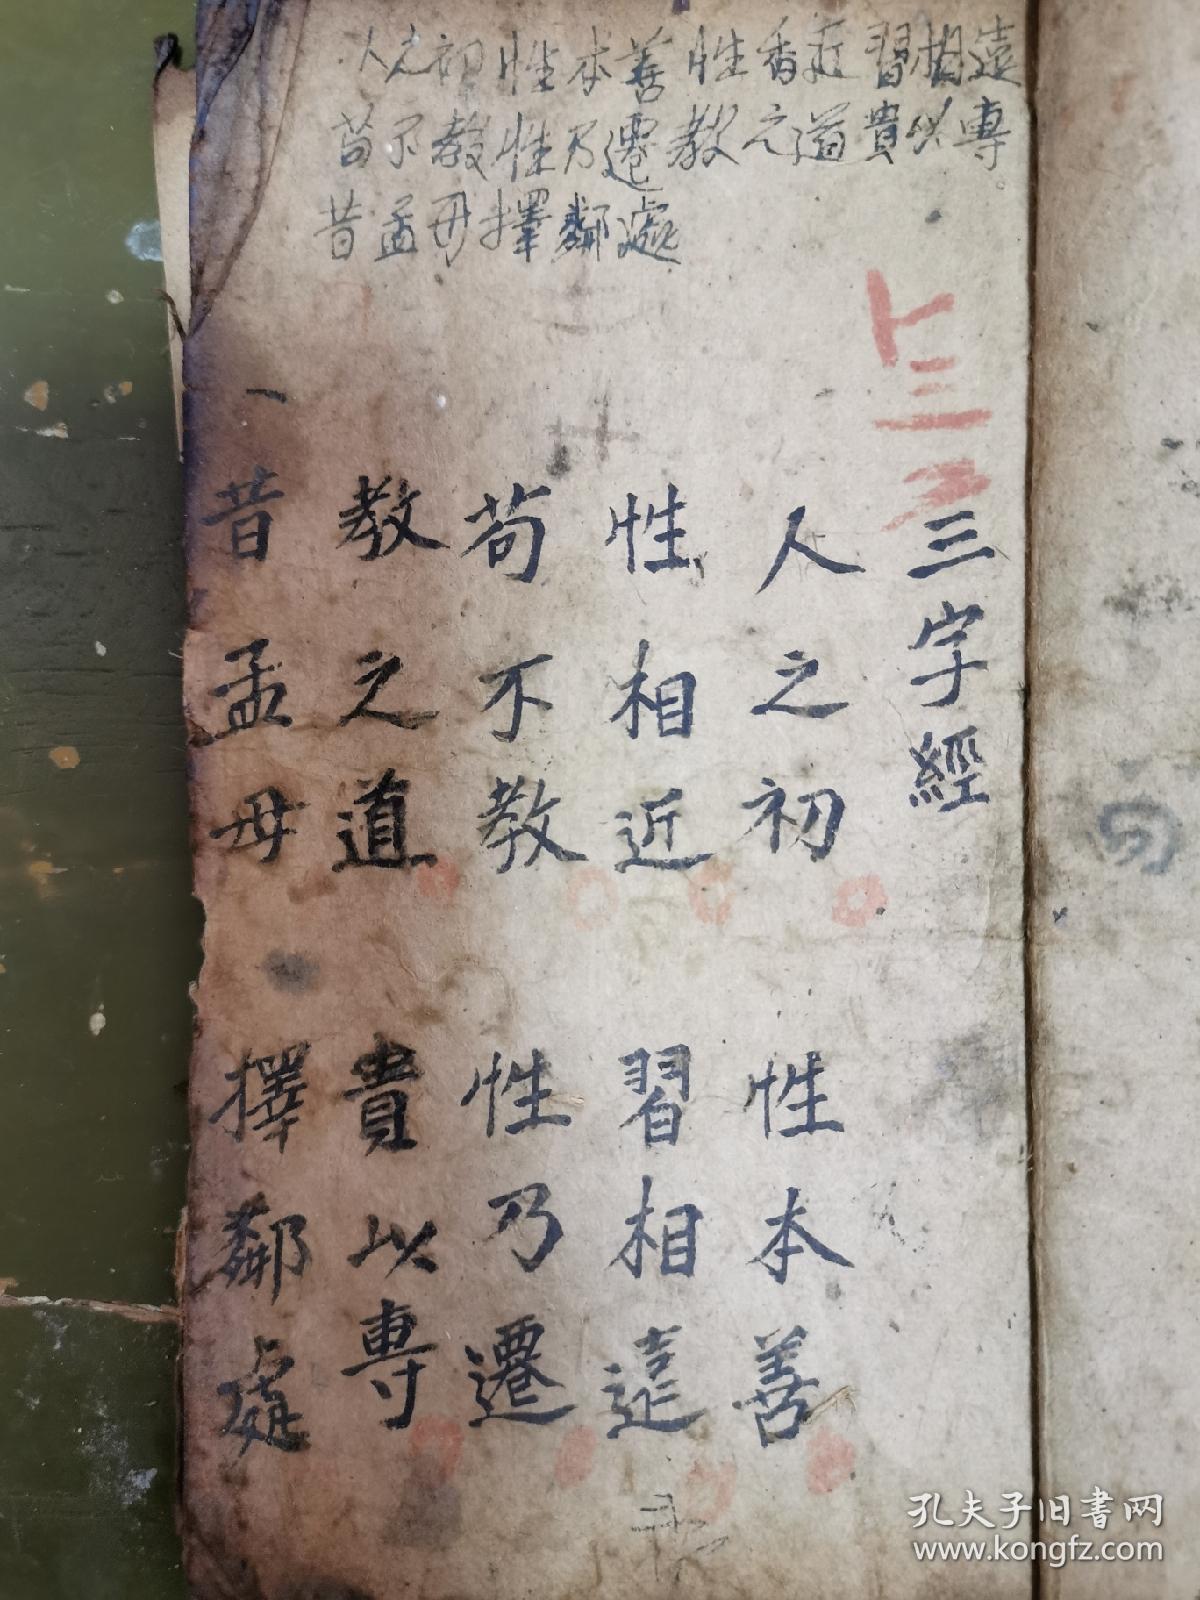 人之初性本善性香近習相遠
苟不教性乃遷教之道貴以專
昔孟毋擇鄰處
上三
三字經
人之初 性本善
性相近 習相遠
苟不教 性乃遷
教之道 貴以專
昔孟母 擇鄰處
孔夫子旧书网
www.kongfz.com